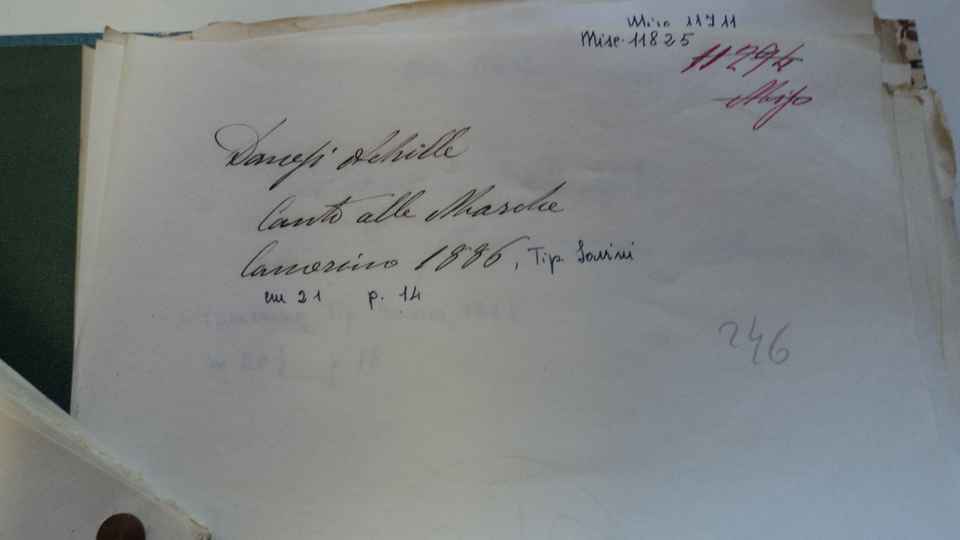 Misc 11711
Misc. 11825
11294
Misc
Danesi Achille
Canto alle Marche
Camerino 1886, Tip Savini
cm 21 p. 14
246